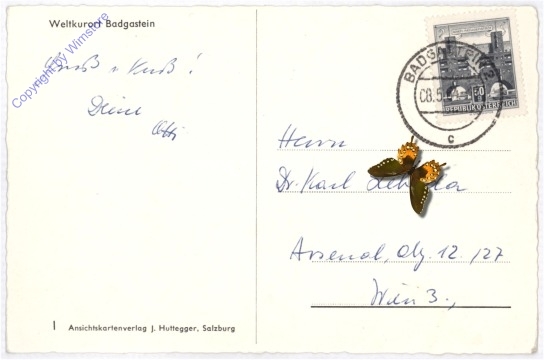 Weltkurort Badgastein
Copyright by Wimstore
Gruß u Kuß!
Deine
BADGASTEIN 2
08.5.
C
REPUBLIK ÖSTERREICH
Herrn
Dr. Karl
Arsenal, Obj. 12/27
Wien 3.,
1 Ansichtskartenverlag J. Huttegger, Salzburg